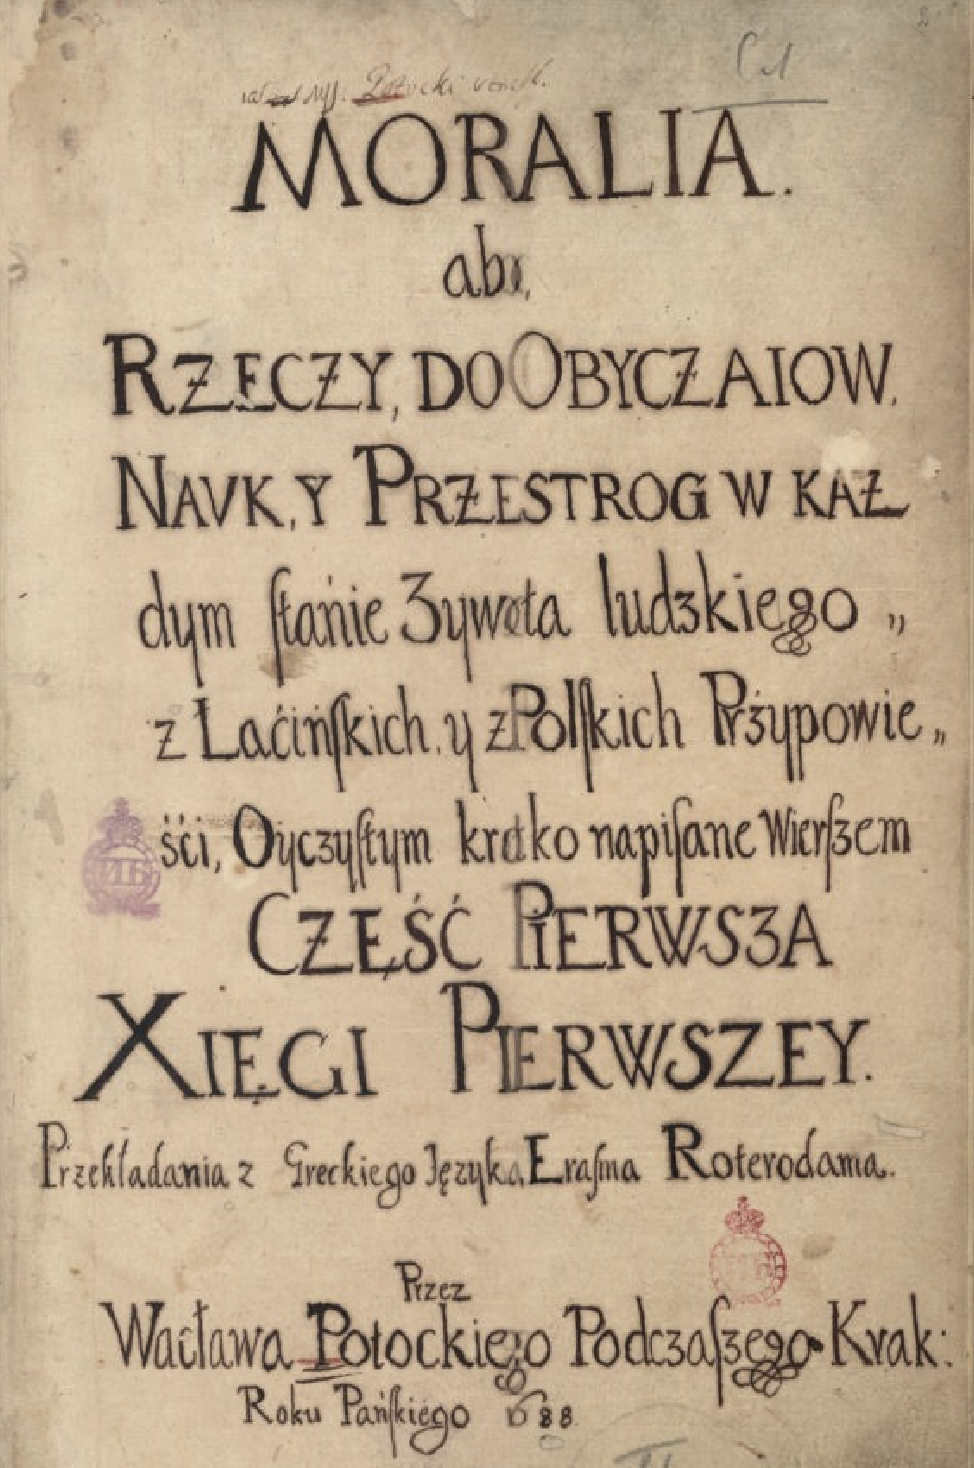 C1
Potocki
MORALIA.
abo,
RZECZY, DO OBYCZAIOW.
NAVK, Y PRZESTROG W KAŻ
dym ſtańie Zywota ludzkiego „
z Łaćińſkich. y z Polſkich Przypowie „
śći, Oyczyſtym krotko napiſane Wierſzem
CZĘŚĆ PIERWSZA
XIĘGI PIERWSZEY.
Przekładania z Greckiego Języka Eraſma Roterodama.
Przez
Wacława Potockiego Podczaſzego Krak:
Roku Pańſkiego 1688.